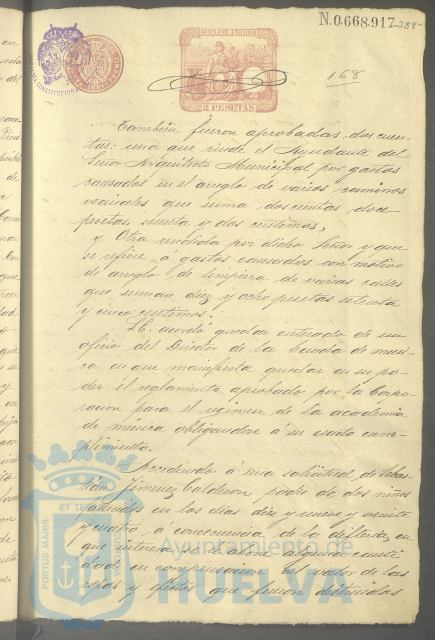 N.0.668.917
388
168
2 PESETAS
Tambien fueron aprobadas dos cuen-
tas: una que rinde el Ayudante del
Señor Arquitecto Municipal por gastos
causados en el arreglo de varios caminos
vecinales que suma doscientas doce
pesetas, noventa y dos centimos,
y Otra rendida por dicho Señor y que
se refiere á gastos causados con motivo
de arreglo de limpieza de varias calles
que suman diez y ocho pesetas setenta
y cinco centimos.
Se acordó quedar enterado de un
oficio del Director de la banda de musi-
ca en que manifiesta quedar en su po-
der el reglamento aprobado por la Corpo-
racion para el regimen de la academia
de musica obligandose á su exacto cum-
plimiento.
Accediendo á una solicitud de
Jimenez Calderon padre de dos niños
en los dias diez y nueve y veinte
y cuatro á consecuencia de la difteria, en
que interesa se le abone alguna canti
dad en compensacion del valor de las
ropas y efectos que fueron destruidos
PORTUS MARIS
ET TERRAE
CUSTODIA
Ayuntamiento de
HUELVA